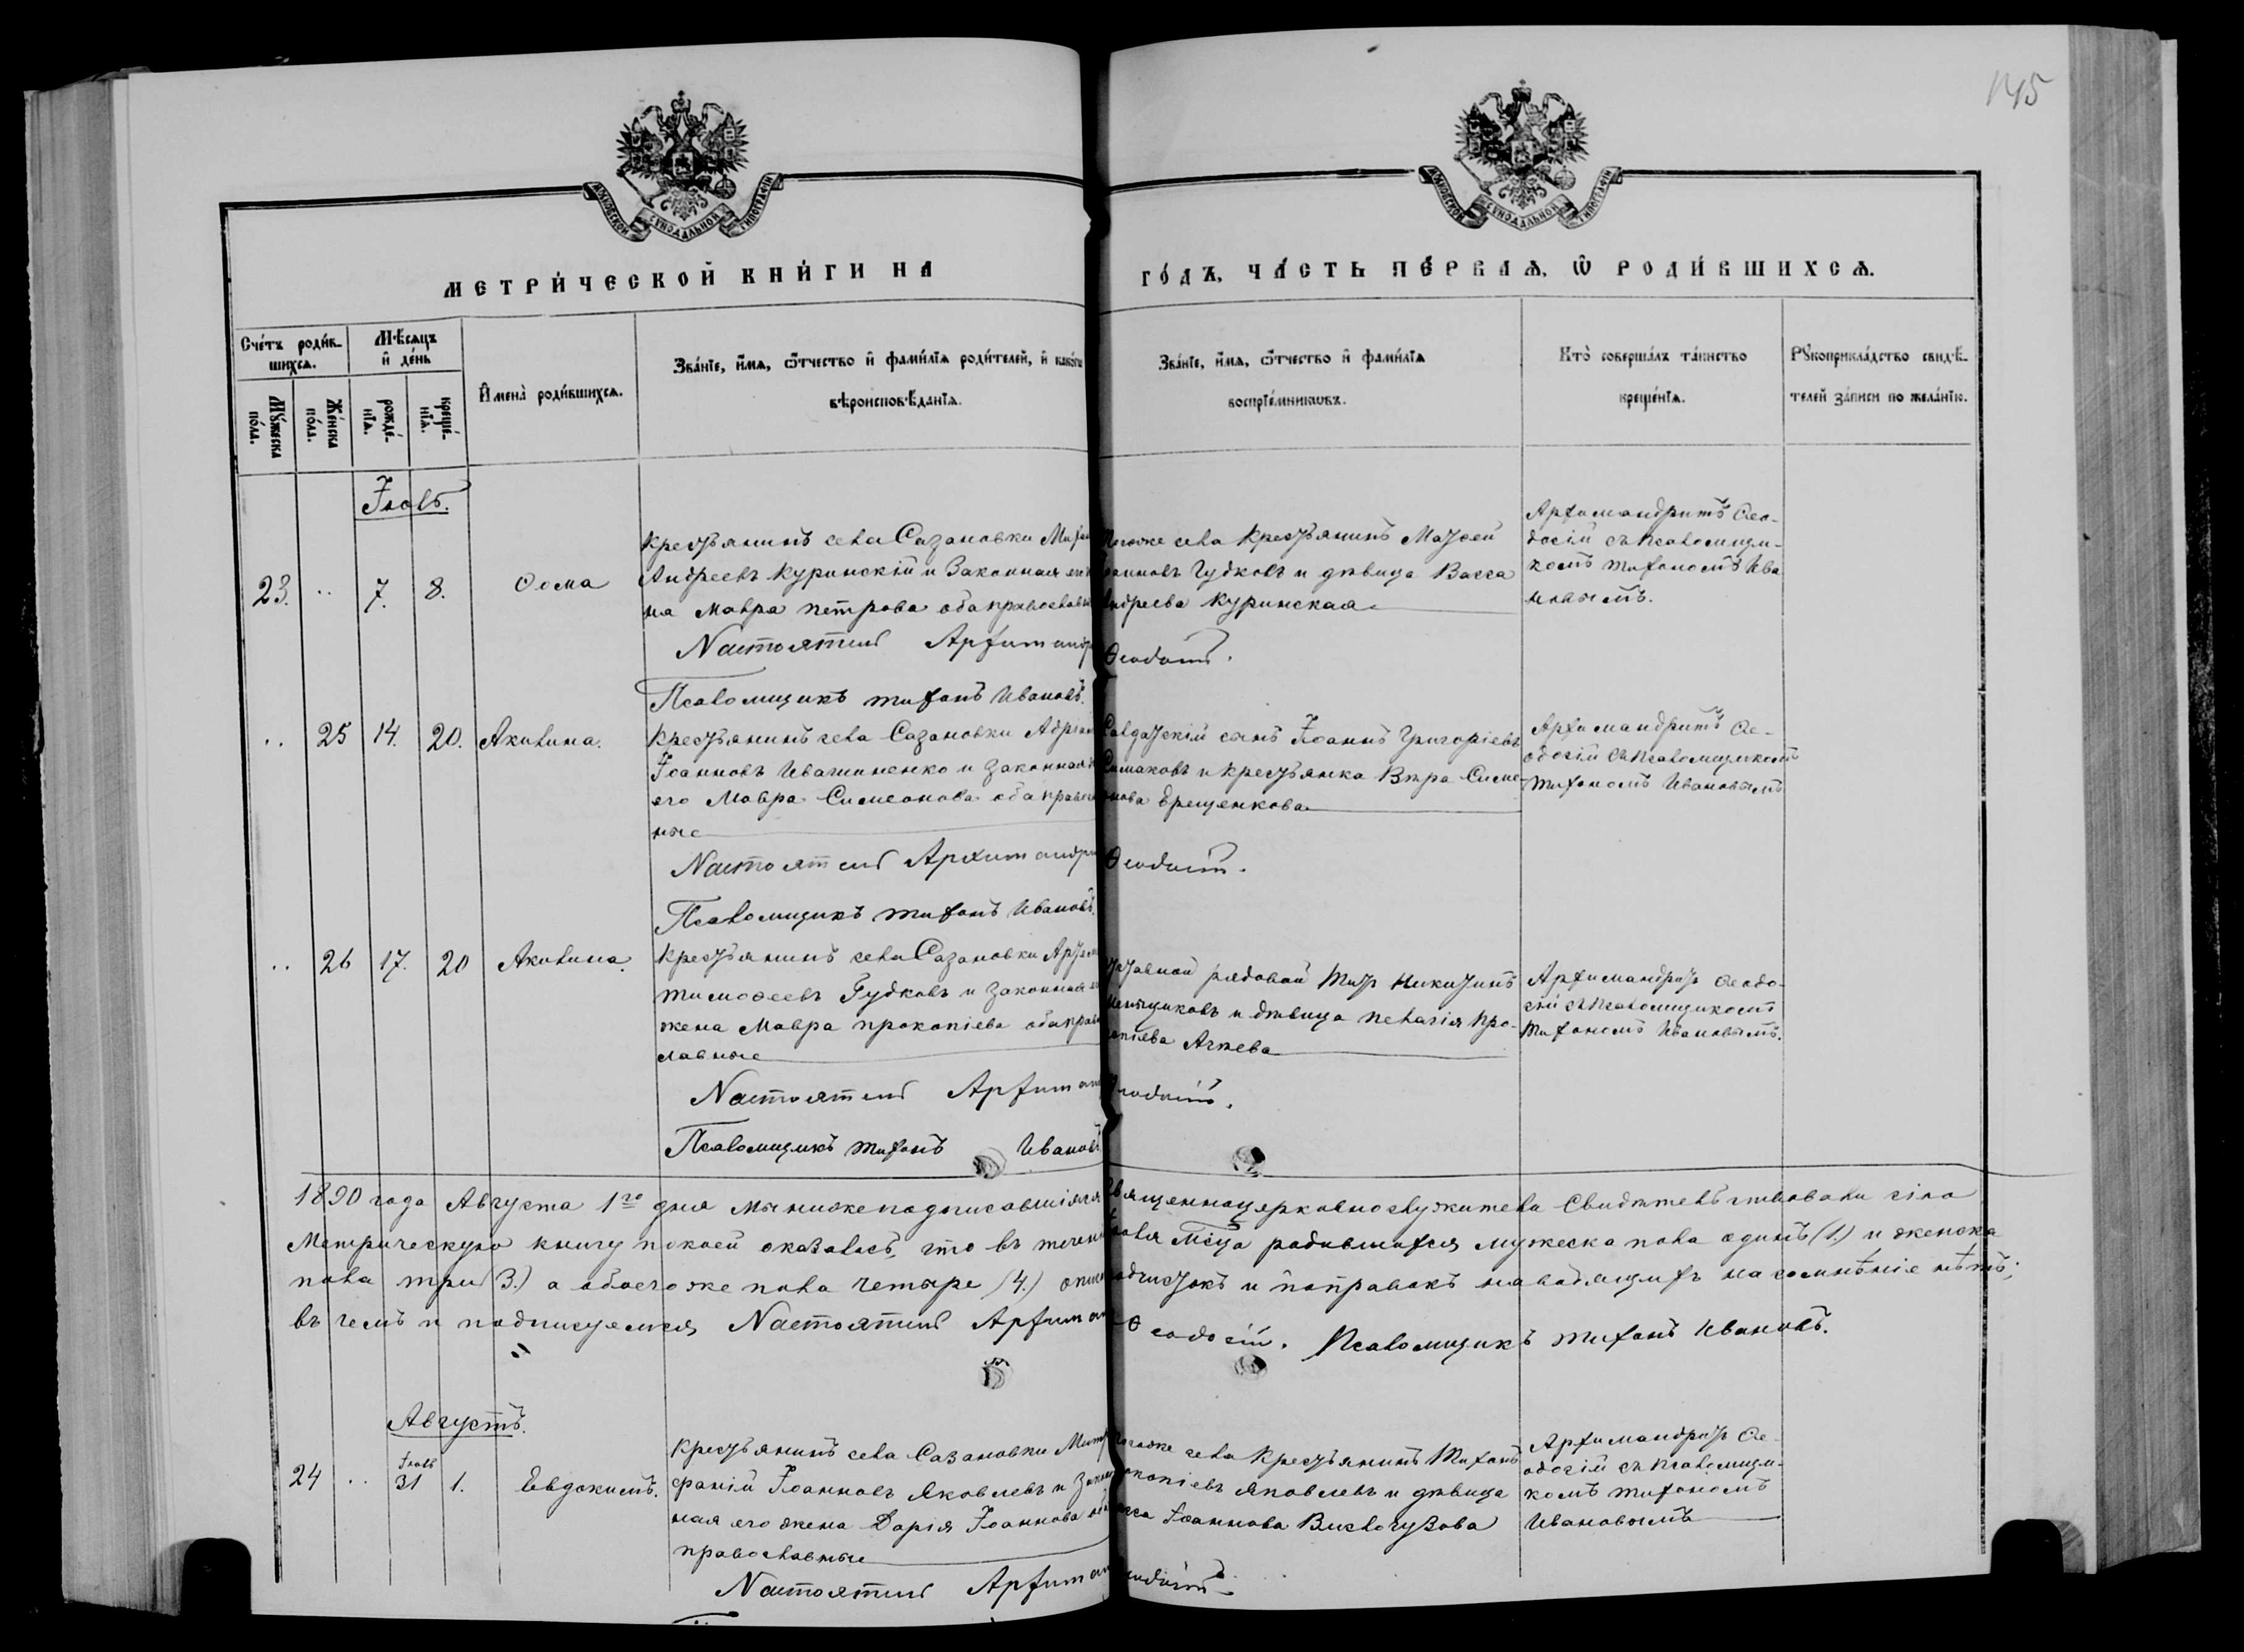 145
МОСКОВСКОЙ СУНОДАЛЬНОЙ ТИПОГРАФІИ
МОСКОВСКОЙ СУНОДАЛЬНОЙ ТИПОГРАФІИ
МЕТРИ́ЧЕСКОЙ КНИ́ГИ НА
ГО́ДЪ, ЧА́СТЬ ПЕ́РВАѦ, Ѡ РОДИ́ВШИХСѦ.
Сче́тъ роди́в-
шихсѧ.
Мꙋ́жеска
по́ла.
Же́нска
по́ла.
Мѣ́сѧцъ
и҆ де́нь
рожде́-
нїѧ.
креще́-
нїѧ.
И҆мена̀ роди́вшихсѧ.
Зва́нїе, и҆́мѧ, ѻ҆́тчество и҆ фами́лїѧ роди́телей, и҆ како́гѡ
вѣроисповѣ́данїѧ.
Зва́нїе, и҆́мѧ, ѻ҆́тчество и҆ фами́лїѧ
воспрїе́мникѡвъ.
Кто̀ соверша́лъ та́инство
креще́нїѧ.
Рꙋкоприкла́дство свидѣ́-
телей за́писи по жела́нїю.
Іюль.
23. .. 7. 8. Ѳома
Крестьянинъ села Сазановки
Андреевъ Куринскій и законная его
на Мавра Петрова оба православн
тогоже села крестьянинъ Матѳей
Гудковъ и дѣвица Васса
Андреева Куринская
Архимандритъ Ѳео-
досій съ псаломщи-
комъ Тихономъ Ива
новымъ.
Настоятель Архимандр Ѳеодосій.
Псаломщикъ Тихонъ Ивановъ.
.. 25 14. 20. Акилина.
Крестьянинъ села Сазановки Адріан
Іоанновъ Ивашиненко и законная
его Мавра Симеонова оба правосл
ные
Солдатскій сынъ Іоаннъ Григоріевъ
Симаковъ и крестьянка Вѣра Симе-
онова Ерещенкова
Архимандритъ Ѳе-
одосій съ псаломщикомъ
Тихономъ Ивановымъ
Настоятель Архимандри Ѳеодосій.
Псаломщикъ Тихонъ Ивановъ.
.. 26 17. 20 Акилина.
Крестьянинъ села Сазановки Артем
Тимоѳеевъ Гудковъ и законная
жена Мавра Прокопіева оба право
славные
рядовой Титъ Никитинъ
и дѣвица Пелагія Про-
копіева Агѣева
Архимандритъ Ѳеодо-
сій съ псаломщикомъ
Тихономъ Ивановымъ.
Настоятель Архиман Ѳеодосій.
Псаломщикъ Тихонъ Ивановъ
1890 года Августа 1го дня мы нижеподписавшіяся Священноцерковнослужители свидѣтельствовали сію
Метрическую книгу по коей оказалось, что въ течен Іюля мсца родившихся мужеска пола одинъ (1.) и женска
пола три (3.) а обоего же пола четыре (4.) подчистокъ и поправокъ наводящихъ на сомнѣніе нѣтъ;
въ чемъ и подписуемся Настоятель Архиман Ѳеодосій. Псаломщикъ Тихонъ Ивановъ.
Августъ.
24 .. Іюль 31 1. Евдокимъ.
Крестьянинъ села Сазановки Митр
фаній Іоанновъ Яковлевъ и закон
ная его жена Дарія Іоаннова оба
православные
тогоже села крестьянинъ Тихонъ
Прокопіевъ Яковлевъ и дѣвица
Васса Іоаннова Вислогузова
Архимандритъ Ѳе-
одосій съ псаломщи-
комъ Тихономъ
Ивановымъ
Настоятель Архиман Ѳеодосій